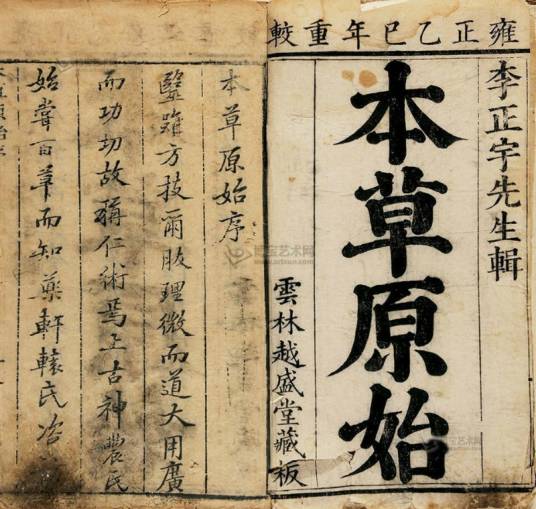 雍正乙巳年重較
李正宇先生輯
本草原始
雲林越盛堂藏板
本草原始序
毉雖方技爾肢理微而道大用廣
而功切故稱仁術焉上古神農氏
始嘗百草而知藥軒轅氏